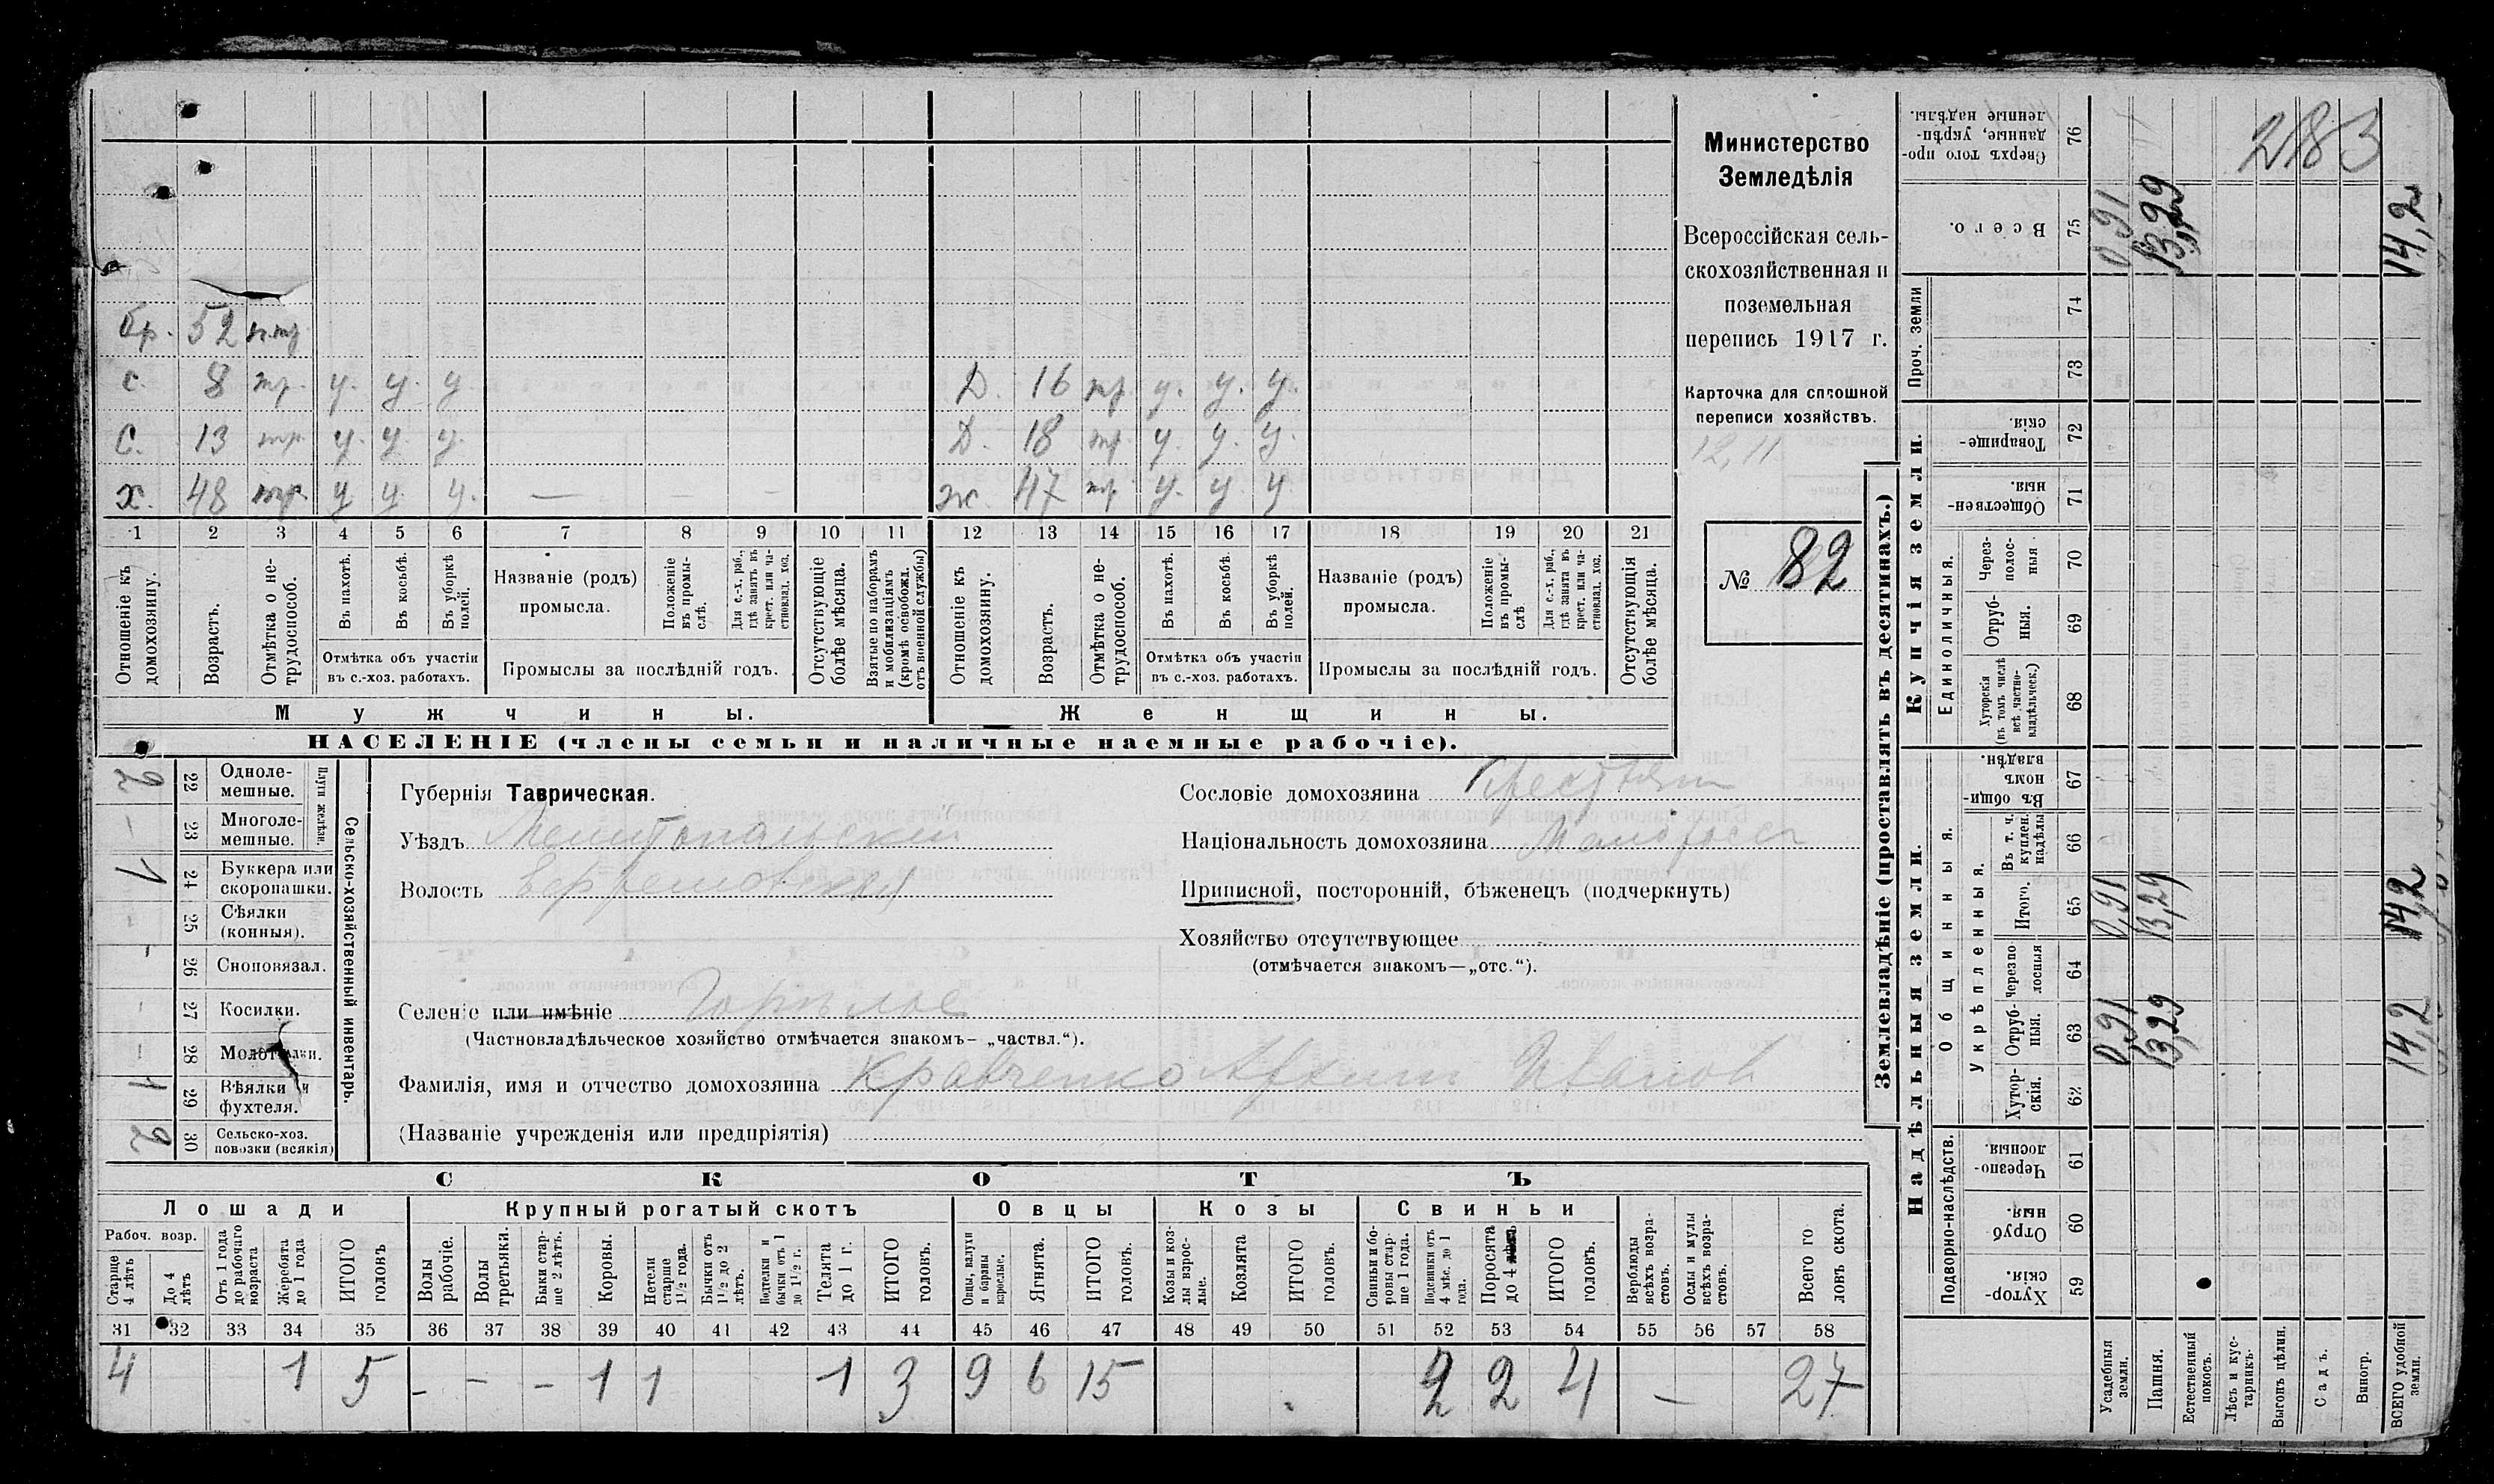 бр. 52 н.тр
с. 8 тр. у. у. у. Д. 16 тр. у. у. у.
С. 13 тр. у. у. у. Д. 18 тр. у. у. у.
х. 48 тр. у у. у. — — — ж. 47 тр. у. у. у.
1 2 3 4 5 6 7 8 9 10 11 12 13 14 15 16 17 18 19 20 21
Отношеніе къ домохозяину.
Возрастъ.
Отмѣтка о не-трудоспособ.
Въ пахотѣ.
Въ косьбѣ.
Въ уборкѣ полей.
Отмѣтка объ участіи
въ с.-хоз. работахъ.
Названіе (родъ)
промысла.
Положеніе въ промы-слѣ.
Для с.-х. раб., гдѣ занятъ въ крест. или ча-стновлад. хоз.
Промыслы за послѣдній годъ.
Отсутствующіе болѣе мѣсяца.
Взятые по наборамъ и мобилизаціямъ (кромѣ освобожд. отъ военной службы)
Отношеніе къ домохозяину.
Возрастъ.
Отмѣтка о не-трудоспособ.
Въ пахотѣ.
Въ косьбѣ.
Въ уборкѣ полей.
Отмѣтка объ участіи
въ с.-хоз. работахъ.
Названіе (родъ)
промысла.
Положеніе въ промы-слѣ
Для с.-х. раб., гдѣ занята въ крест. или ча-стновлад. хоз.
Промыслы за послѣдній годъ.
Отсутствующія болѣе мѣсяца.
Мужчины. Женщины.
НАСЕЛЕНІЕ (члены семьи и наличные наемные рабочіе).
Министерство
Земледѣлія
Всероссійская сель-
скохозяйственная и
поземельная
перепись 1917 г.
Карточка для сплошной
переписи хозяйствъ.
12,11
№ 82
Сельско-хозяйственный инвентарь.
Плуги желѣзн.
2 22 Одноле-мешные.
— 23 Многоле-мешные.
1 24 Буккера или скоропашки.
- 25 Сѣялки (конныя).
- 26 Сноповязал.
- 27 Косилки.
- 28 Молотилки.
1 29 Вѣялки и фухтеля.
2 30 Сельско-хоз. повозки (всякія)
Губернія Таврическая.
Уѣздъ Мелитопольскій
Волость Ефремовская
Селеніе или имѣніе Горѣлое
(Частновладѣльческое хозяйство отмѣчается знакомъ— „частвл.“).
Фамилія, имя и отчество домохозяина Кравченко Иванов
(Названіе учрежденія или предпріятія)
Сословіе домохозяина Крестьян
Національность домохозяина Малоросс
Приписной, посторонній, бѣженецъ (подчеркнуть)
Хозяйство отсутствующее
(отмѣчается знакомъ—„отс.“).
СКОТЪ
Лошади Крупный рогатый скотъ Овцы Козы Свиньи
Рабоч. возр.
Старше 4 лѣтъ
До 4 лѣтъ
Отъ 1 года до рабочаго возраста
Жеребята до 1 года
ИТОГО головъ
Волы рабочіе.
Волы третьяки.
Быки стар-ше 2 лѣтъ.
Коровы.
Нетели старше 1½ года.
Бычки отъ 1½ до 2 лѣтъ.
Телята до 1 г.
ИТОГО головъ.
Овцы, валухи и бараны взрослые.
Ягнята.
ИТОГО головъ.
Козы и коз-лы взрос-лые.
Козлята
ИТОГО головъ.
Свиньи и бо-ровы стар-ше 1 года.
Подсвинки отъ 4 мѣс. до 1 года.
Поросята до 4
ИТОГО головъ.
Верблюды всѣхъ возра-стовъ.
Ослы и мулы всѣхъ возра-стовъ.
Всего го ловъ скота.
31 32 33 34 35 36 37 38 39 40 41 42 43 44 45 46 47 48 49 50 51 52 53 54 55 56 57 58
4 1 5 - - - 1 1 1 3 9 6 15 2 2 4 — 27
Землевладѣніе (проставлять въ десятинахъ.)
Купчія земли.
Надѣльныя земли.
Сверхъ того про-данные, укрѣп-ленные надѣлы. 76
283
Всего. 75 0,91 13,29 14,2
Проч. земли 74
73
Товарище-скія. 72
Обществен-ныя. 71
Единоличныя.
Через-полос-ныя 70
Отруб-ныя. 69
Хуторскія (въ томъ числѣ всѣ частно-владѣльческ.) 68
Общинныя.
Въ общи номъ владѣн. 67
Укрѣпленныя.
Въ т. ч. куплен. надѣлы 66
Итого. 65 0,91 13,29 14,2
Черезпо-лосныя 64
Отруб-ныя. 63 0,91 13,29 14,2
Хутор-скія. 62
Подворно-наслѣдств.
Черезпо-лосныя. 61
Отруб ныя. 60
Хутор-скія. 59
Усадебныя земли.
Пашня.
Естественный покосъ.
Лѣсъ и кус-тарникъ.
Выгонъ цѣлин.
Садъ.
Виногр.
ВСЕГО удобной земли.